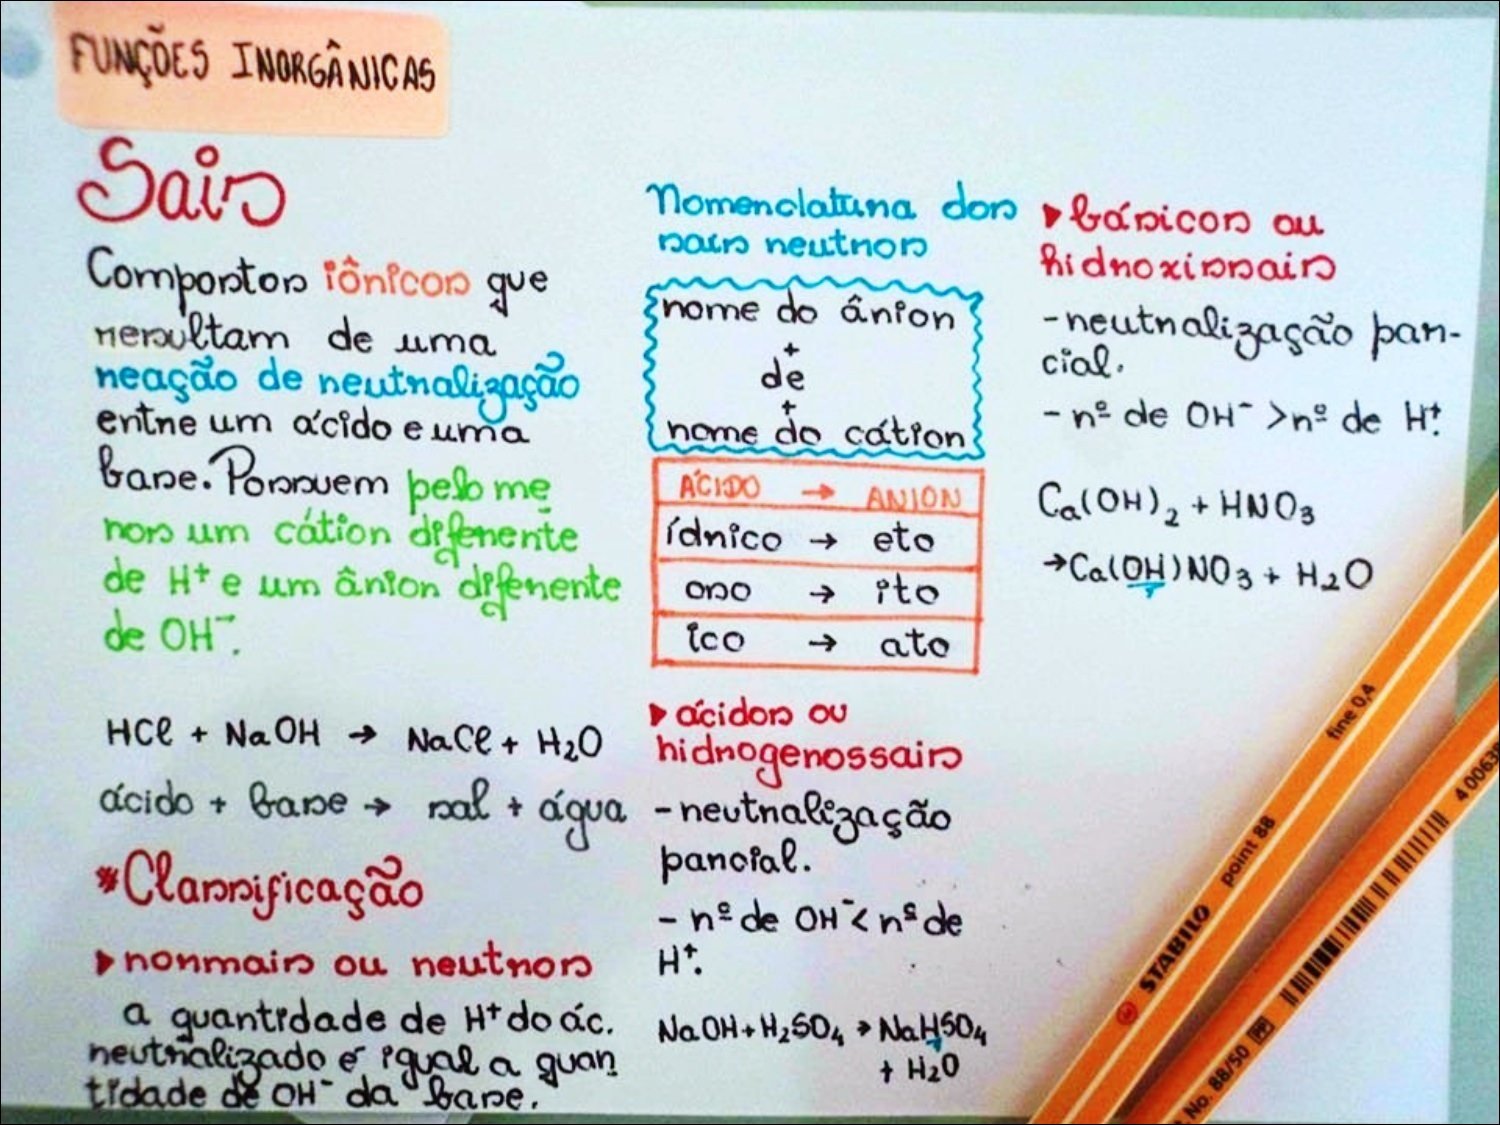 FUNÇÕES INORGÂNICAS
Sais
Compostos iônicos que
resultam de uma
reação de neutralização
entre um ácido e uma
base. Possuem pelo me
nos um cátion diferente
de H⁺ e um ânion diferente
de OH⁻.
HCl + NaOH → NaCl + H₂O
ácido + base → sal + água
*Classificação
▸ normais ou neutros
a quantidade de H⁺ do ác.
neutralizado é igual a quan
tidade de OH⁻ da base.
Nomenclatura dos
sais neutros
nome do ânion
+
de
+
nome do cátion
ÁCIDO → ANION
ídrico → eto
oso → ito
ico → ato
▸ ácidos ou
hidrogenossais
- neutralização
parcial.
- nº de OH⁻ < nº de
H⁺.
NaOH + H₂SO₄ → NaHSO₄
+ H₂O
▸ básicos ou
hidroxissais
- neutralização par-
cial.
- nº de OH⁻ > nº de H⁺.
Ca(OH)₂ + HNO₃
→ Ca(OH)NO₃ + H₂O
STABILO point 88 fine 0,4
No. 88/50 PP 40063